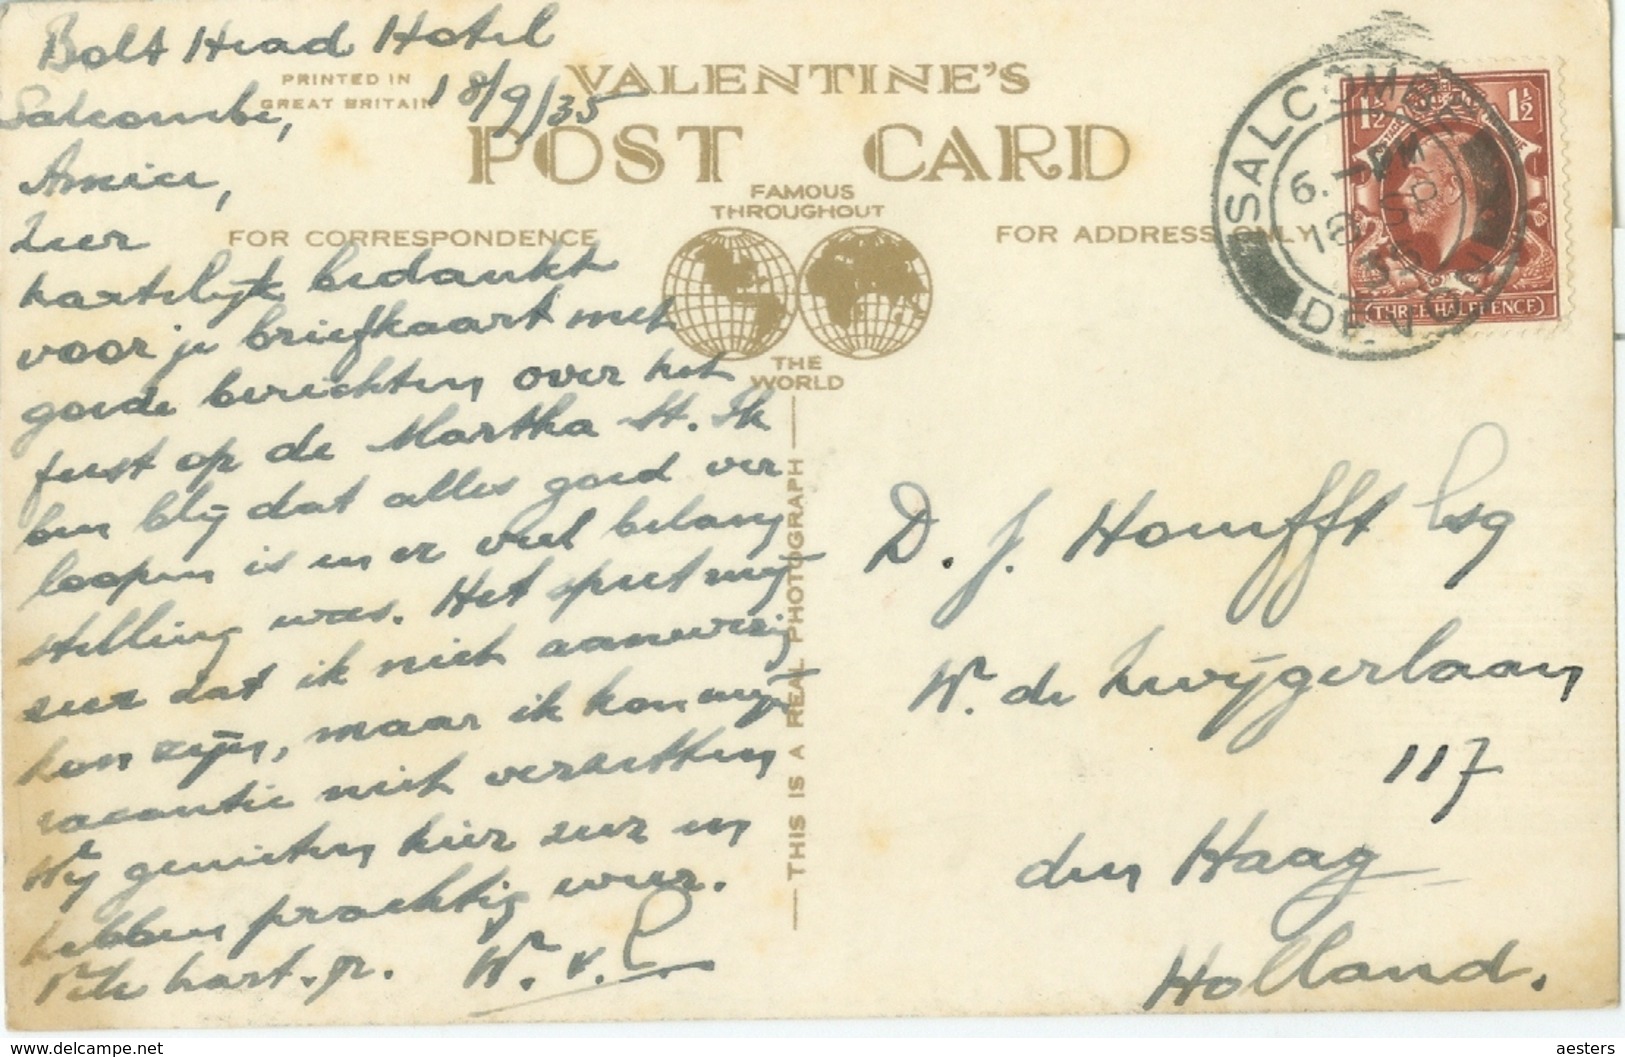 Bolt Head Hotel
PRINTED IN
GREAT BRITAIN
Salcombe, 18/9/35
VALENTINE'S
POST CARD
FAMOUS
THROUGHOUT
THE
WORLD
FOR CORRESPONDENCE
FOR ADDRESS ONLY
Amice,
Zeer
hartelijk bedankt
voor je briefkaart met
goede berichten over het
feest op de Martha St. Ik
ben blij dat alles goed ver
loopen is en er veel belang
stelling was. Het speet mij
zeer dat ik niet aanwezig
kon zijn, maar ik kon mijn
vacantie niet verzetten
Wij genieten hier zeer en
hebben prachtig weer.
Vele hart. gr. W. v.
THIS IS A REAL PHOTOGRAPH
SALCOMBE
6. PM
18 SP
35
DEVON
1½ 1½
(THREE HALFPENCE)
D. J. Homfft Esq
W. de Zwijgerlaan
117
den Haag
Holland.
aesters